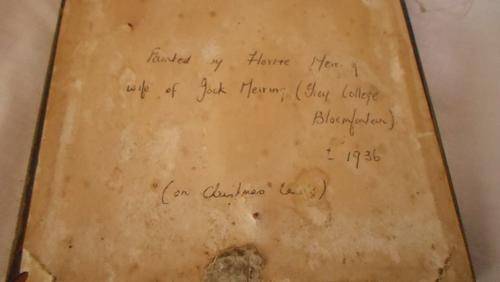 Painted by Florrie Meiring
wife of Jock Meiring (Grey College
Bloemfontein)
± 1936
(on Christmas